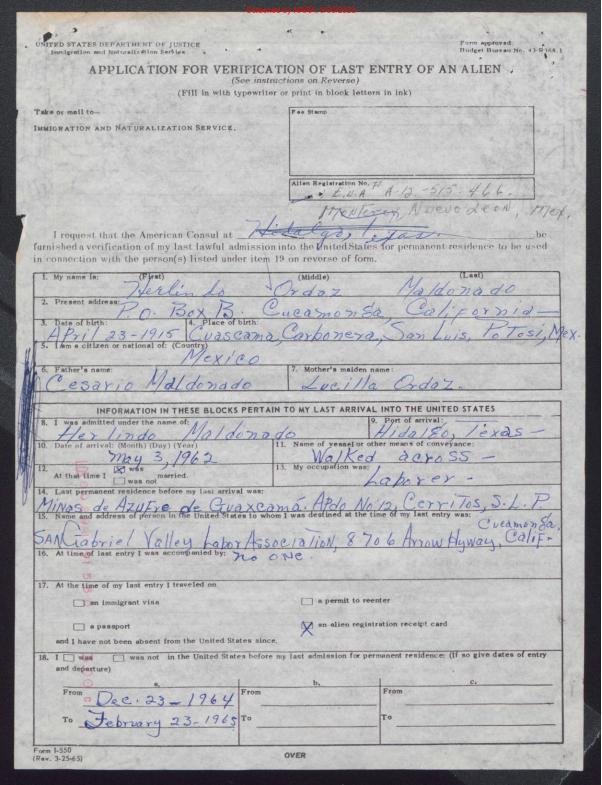 UNITED STATES DEPARTMENT OF JUSTICE
Immigration and Naturalization Service
Form approved.
Budget Bureau No. 43-R468.1
APPLICATION FOR VERIFICATION OF LAST ENTRY OF AN ALIEN
(See instructions on Reverse)
(Fill in with typewriter or print in block letters in ink)
Take or mail to—
IMMIGRATION AND NATURALIZATION SERVICE.
Fee Stamp
Alien Registration No.
A-12-515-466.
Monterey, Nuevo Leon, Mex.
I request that the American Consul at Hidalgo, Texas. be
furnished a verification of my last lawful admission into the United States for permanent residence to be used
in connection with the person(s) listed under item 19 on reverse of form.
1. My name is: (First) (Middle) (Last)
Herlindo Ordaz Maldonado
2. Present address:
P.O. Box B. Cucamonga, California—
3. Date of birth:
April 23-1915
4. Place of birth:
Guascama, Carbonera, San Luis, Potosi, Mex.
5. I am a citizen or national of: (Country)
Mexico
6. Father's name:
Cesario Maldonado
7. Mother's maiden name:
Lucilla Ordaz.
INFORMATION IN THESE BLOCKS PERTAIN TO MY LAST ARRIVAL INTO THE UNITED STATES
8. I was admitted under the name of:
Herlindo Maldonado
9. Port of arrival:
Hidalgo, Texas—
10. Date of arrival: (Month) (Day) (Year)
May 3, 1962
11. Name of vessel or other means of conveyance:
Walked across—
12. At that time I was married.
was not
13. My occupation was:
Laborer-
14. Last permanent residence before my last arrival was:
Minas de Azufre de Guaxcamá. Apdo No. 12, Cerritos, S.L.P
15. Name and address of person in the United States to whom I was destined at the time of my last entry was:
San Gabriel Valley Labor Association, 8706 Arrow Hyway, Cucamonga, Calif-
16. At time of last entry I was accompanied by:
no one.
17. At the time of my last entry I traveled on
an immigrant visa
a permit to reenter
a passport
X an alien registration receipt card
and I have not been absent from the United States since.
18. I was was not in the United States before my last admission for permanent residence: (If so give dates of entry
and departure)
a. b. c.
From Dec. 23-1964 From From
To February 23-1965 To To
Form I-550
(Rev. 3-25-65)
OVER